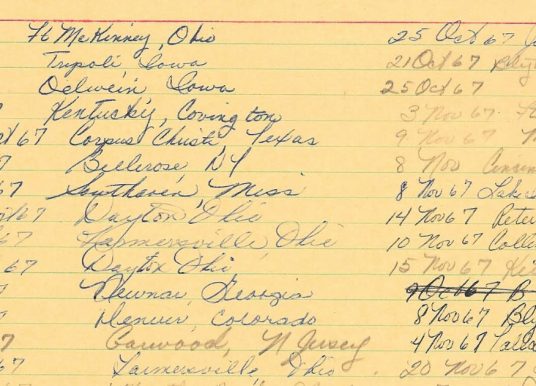 Ft McKinney, Ohio 25 Oct 67
Tripoli Iowa 21 Oct 67
Oelwein, Iowa 25 Oct 67
Kentucky, Covington 3 Nov 67
67 Corpus Christi, Texas 9 Nov 67
7 Bellerose, NY 8 Nov
67 Southaven, Miss 8 Nov 67 Lake
67 Dayton Ohio 14 Nov 67
67 Farmersville, Ohio 10 Nov 67
67 Dayton Ohio, 15 Nov 67
7 Newnan, Georgia 9 Oct 67 B
7 Denver, Colorado 8 Nov 67
7 Garwood, N Jersey 4 Nov 67
67 Farmersville Ohio 20 Nov 67